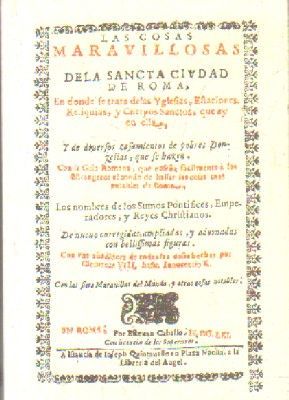 LAS COSAS
MARAVILLOSAS
DELA SANCTA CIVDAD
DE ROMA,
En donde se trata de las Yglesias, Estaciones,
Reliquias, y Cuerpos Sanctos, que ay
en ella,
Y de diversos casamientos de pobres Donzellas, que se hazen.
Con la Guia Romana, que enseña facilmente a los
Estrangeros el modo de hallar las cosas mas
notables de Roma.
Los nombres de los Sumos Pontifices, Emperadores, y Reyes Christianos.
De nuevo corregidas, ampliadas, y adornadas
con bellissimas figuras.
Con las siete Maravillas del Mundo y otras cosas notables.
EN ROMA, Por
Con licencia de los Superiores.
A Instancia de Ioseph en Plaza Nadna, a la
Libreria del Angel.